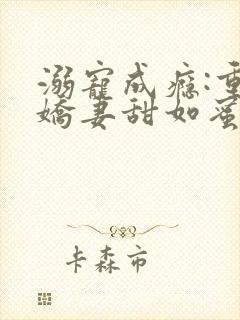 溺寵成癮:重
嬌妻甜如蜜
卡森市